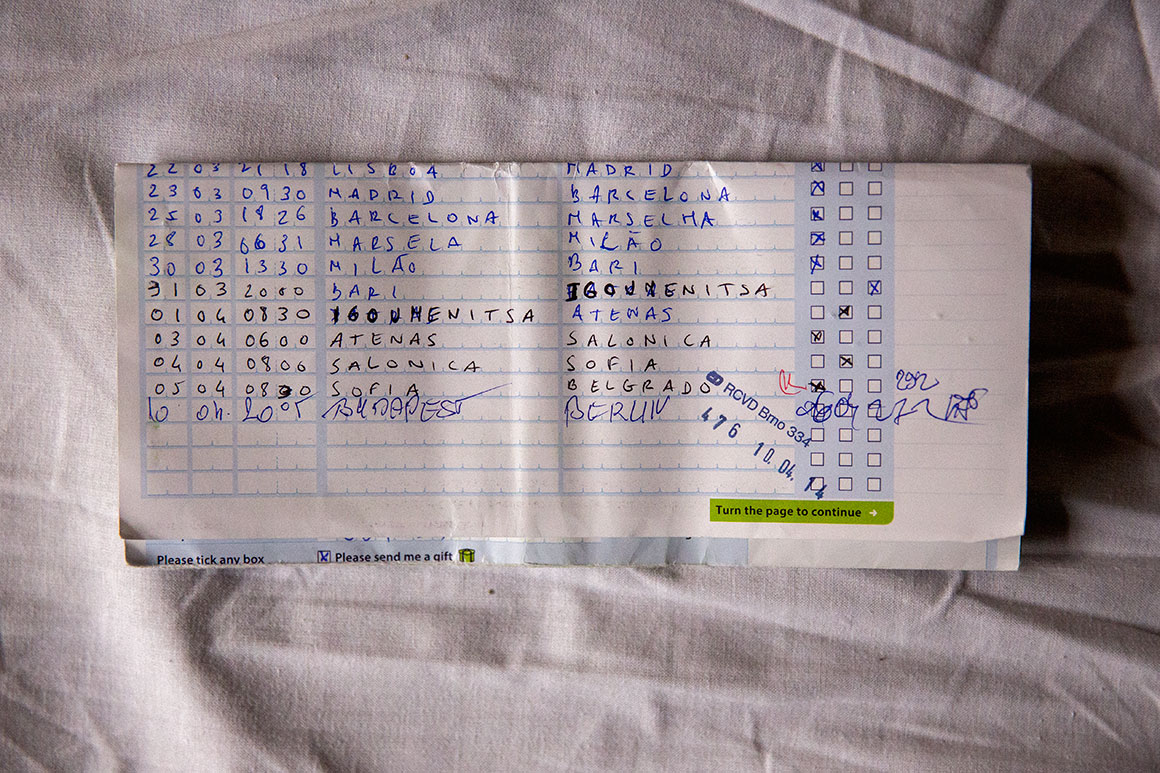 22 03 21 18 LISBOA MADRID
23 03 09 30 MADRID BARCELONA
25 03 18 26 BARCELONA MARSELHA
28 03 06 31 MARSELA MILÃO
30 03 13 30 MILÃO BARI
31 03 20 00 BARI IGOUMENITSA
01 04 08 30 IGOUMENITSA ATENAS
03 04 06 00 ATENAS SALONICA
04 04 08 00 SALONICA SOFIA
05 04 08 SOFIA BELGRADO
10 04. 2005 BUDAPEST BERLIN
RCVD Bmo 334
476 10.04.14
Turn the page to continue
Please tick any box Please send me a gift